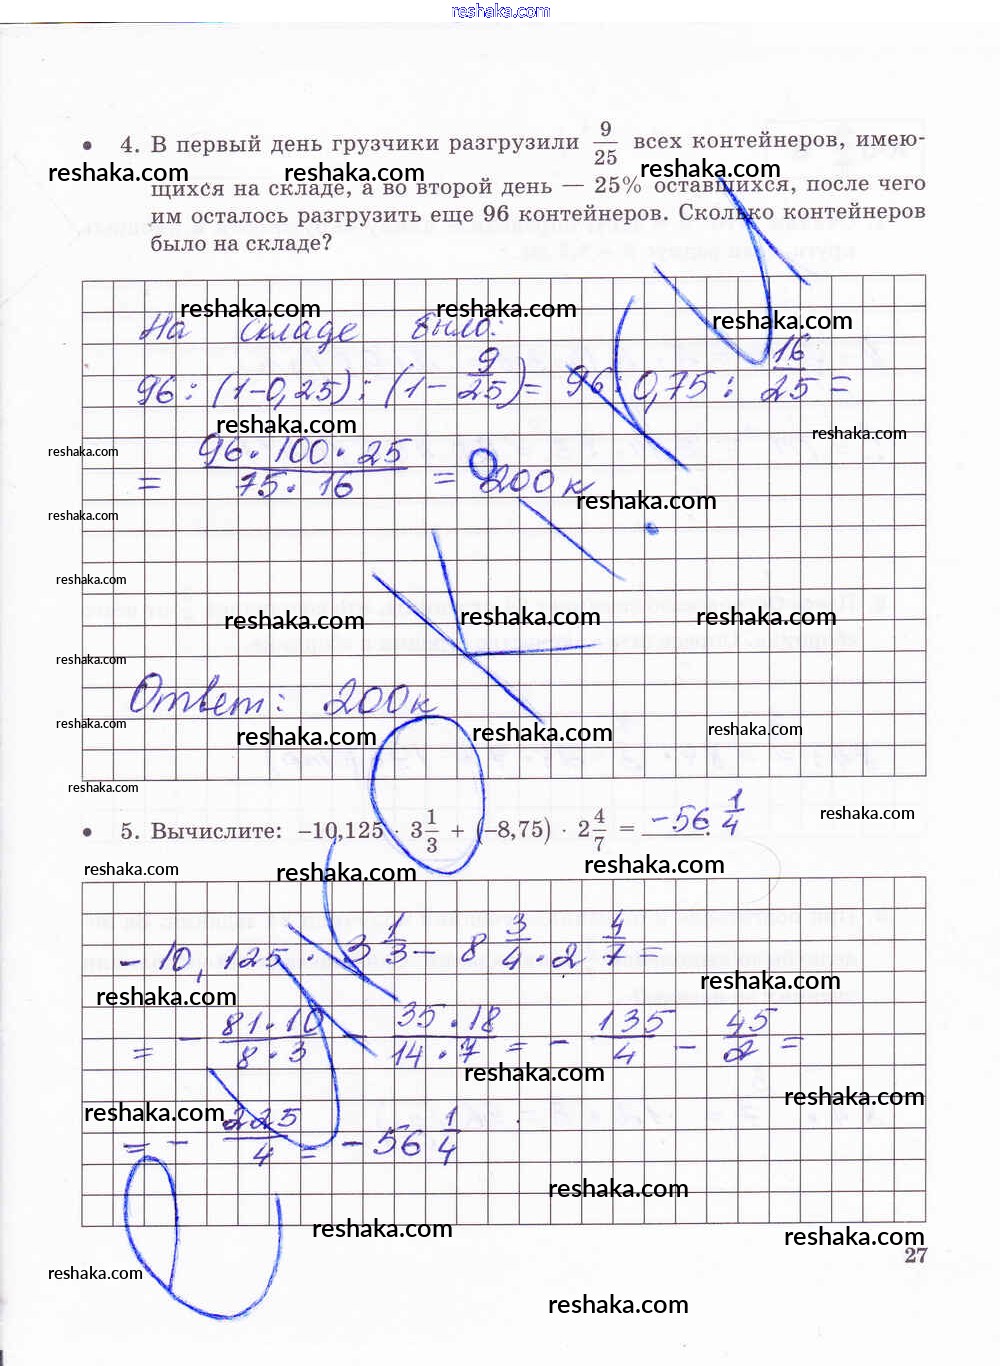 reshaka.com
• 4. В первый день грузчики разгрузили 9/25 всех контейнеров, имею-
reshaka.com reshaka.com reshaka.com
щихся на складе, а во второй день — 25% оставшихся, после чего
им осталось разгрузить еще 96 контейнеров. Сколько контейнеров
было на складе?
reshaka.com reshaka.com reshaka.com
На складе было:
96 : (1-0,25) : (1- 9/25) = 96 : 0,75 : 16/25 =
reshaka.com reshaka.com
reshaka.com
= 96·100·25/75·16 = 200 к
reshaka.com
reshaka.com
reshaka.com
reshaka.com reshaka.com reshaka.com
reshaka.com
Ответ: 200к
reshaka.com reshaka.com reshaka.com reshaka.com
reshaka.com
reshaka.com
• 5. Вычислите: –10,125 · 3 1/3 + (–8,75) · 2 4/7 = -56 1/4.
reshaka.com reshaka.com reshaka.com
- 10,125 · 3 1/3 - 8 3/4 · 2 4/7 =
reshaka.com reshaka.com
= - 81·10/8·3 - 35·18/14·7 = - 135/4 - 45/2 =
reshaka.com
reshaka.com reshaka.com
= - 225/4 = - 56 1/4
reshaka.com
reshaka.com reshaka.com
27
reshaka.com
reshaka.com